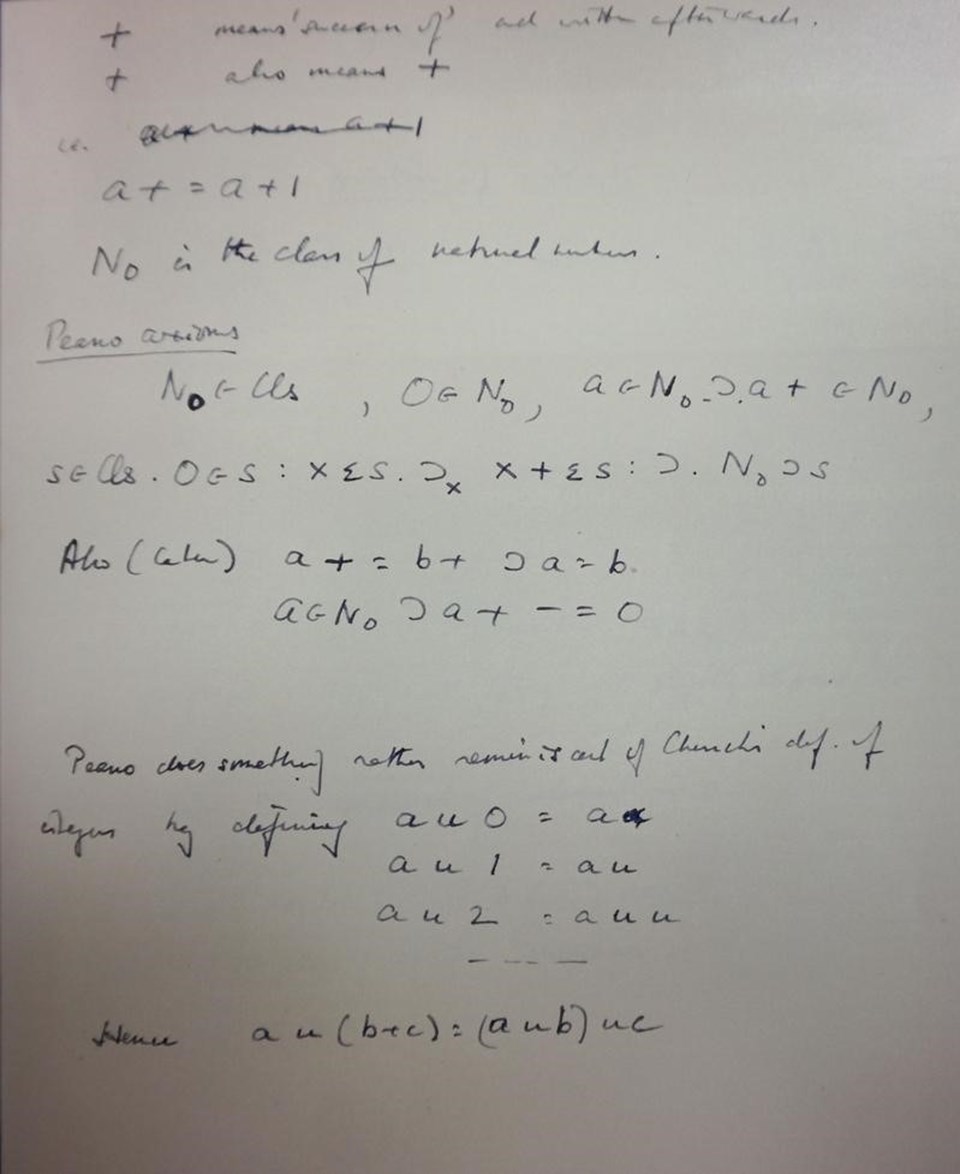 + means 'success of' and written afterwards.
+ also means +
i.e. a+ means a+1
a+ = a+1
N₀ is the class of natural numbers.
Peano axioms
N₀ ϵ Cls , 0 ϵ N₀, a ϵ N₀ .Ɔ. a+ ϵ N₀,
s ϵ Cls . 0 ϵ s : x ε s . Ɔₓ x+ ε s : Ɔ. N₀ Ɔ s
Also (later) a+ = b+ Ɔ a = b.
a ϵ N₀ Ɔ a+ -= 0
Peano does something rather reminiscent of Church's def. of
integers by defining a u 0 = a
a u 1 = a u
a u 2 = a u u
- --- —
Hence a u (b+c) = (a u b) u c